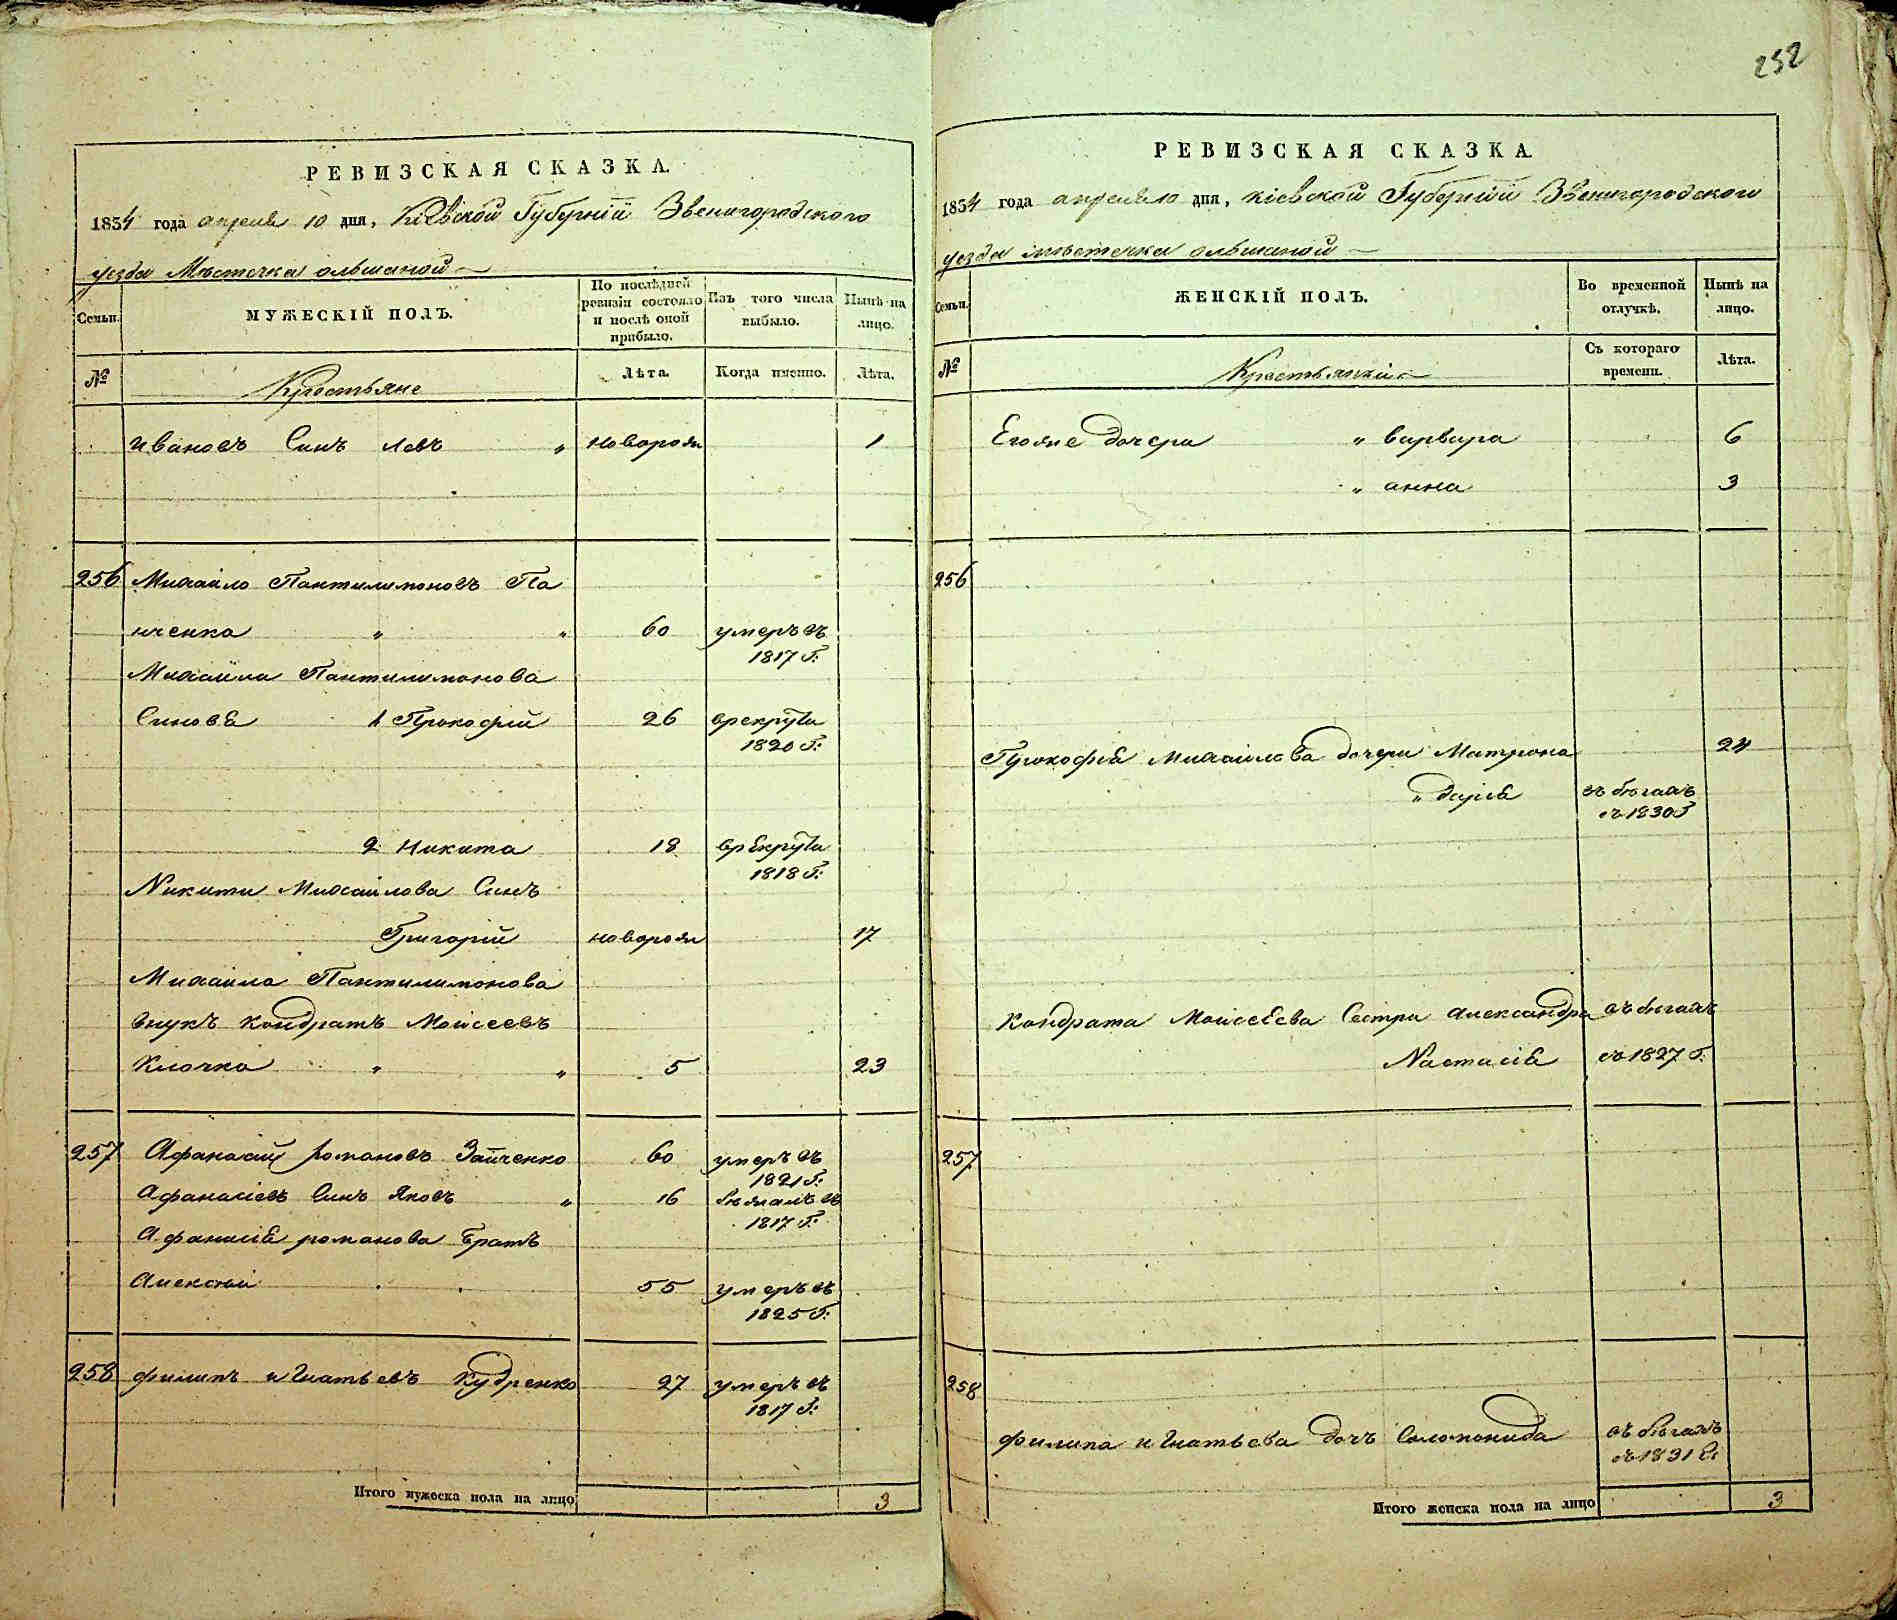 252
РЕВИЗСКАЯ СКАЗКА.
1834 года апреля 10 дня, Кіевской Губерніи Звенигородского
уезда Мѣстечка ольшаной
Семьи.
МУЖЕСКІЙ ПОЛЪ.
По послѣдней ревизіи состояло и послѣ оной прибыло.
Изъ того числа выбыло.
Нынѣ на лицо.
№
Крестьяне
Лѣта.
Когда именно.
Лѣта.
Ивановъ Синъ Левъ " новорож 1
256 Михайло Пантилимоновъ Па
нченко " " 60 умеръ въ
1817 г:
Михайла Пантилимонова
Синовя 1 Прокофій 26 врекруты
1820 г:
2 Никита 18 врекруты
1818 г:
Никити Михайлова Синъ
Григорій новорож 17
Михайла Пантилимонова
внукъ Кондратъ Моисеевъ
Клочко " " 5 23
257 Афанасий романовъ Зайченко 60 умеръ въ
1821 г:
Афанасіевъ Синъ Яковъ " 16 бѣжалъ въ
1817 г:
Афанасія романова братъ
Алексѣй 55 умеръ въ
1825 г:
258 филипъ игнатьевъ Кудренко 27 умеръ въ
1817 г:
Итого мужеска пола на лицо 3
РЕВИЗСКАЯ СКАЗКА.
1834 года апреля 10 дня, Кіевской Губерніи Звенигородского
уезда мѣстечка ольшаной
Семьи.
ЖЕНСКІЙ ПОЛЪ.
Во временной отлучкѣ.
Нынѣ на лицо.
№
Крестьянки
Съ котораго времени.
Лѣта.
Егоже дочери " варвара 6
" анна 3
256
Прокофія Михайлова дочери Матрона 24
" дарія въ бѣгахъ
съ 1830 г
Кондрата Моисеева Сестри александра въ бѣгахъ
Настасія съ 1827 г.
257
258
филипа игнатьева дочъ Соломонида въ бѣгахъ
съ 1831 г:
Итого женска пола на лицо 3